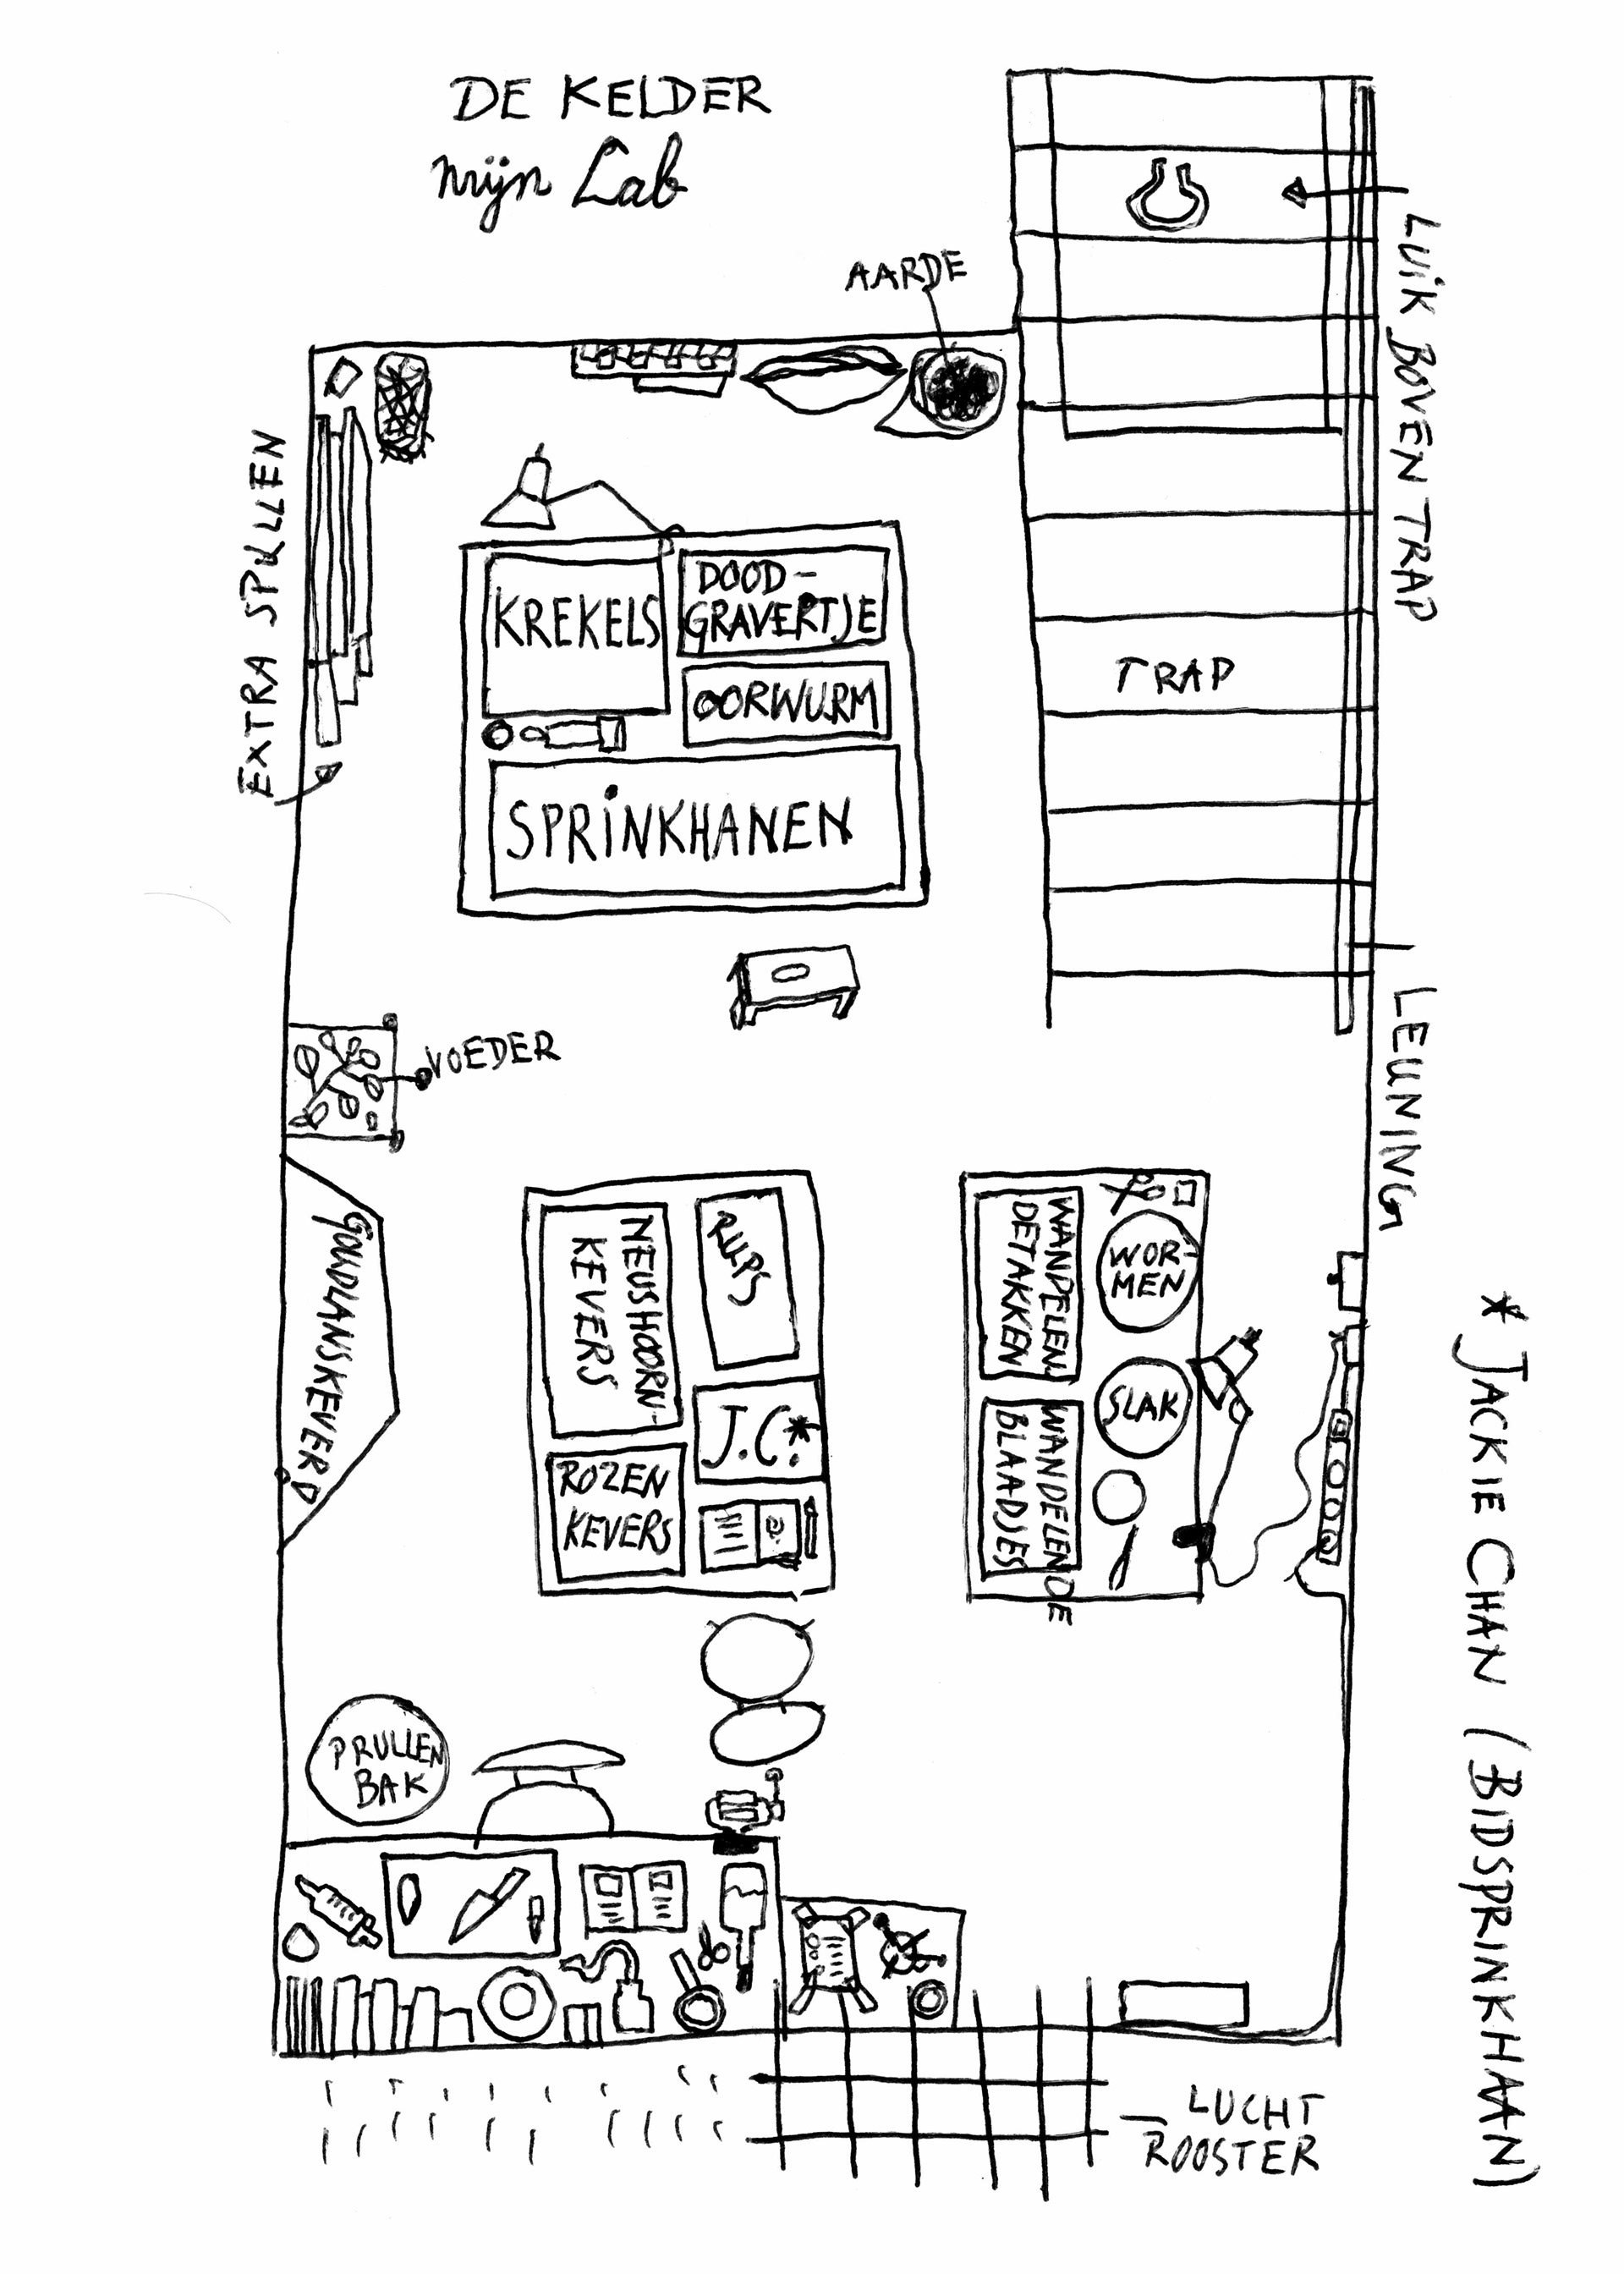 DE KELDER
mijn Lab
AARDE
LUIK BOVEN TRAP
EXTRA SPULLEN
KREKELS
DOOD-
GRAVERTJE
OORWURM
SPRINKHANEN
TRAP
LEUNING
VOEDER
GOUDLANSKEVER
NEUSHOORN-
KEVERS
RUPS
J.C.*
ROZEN
KEVERS
WANDELEN
DE TAKKEN
WANDELENDE
BLAADJES
WOR-
MEN
SLAK
* JACKIE CHAN (BIDSPRINKHAAN)
PRULLEN
BAK
LUCHT
ROOSTER